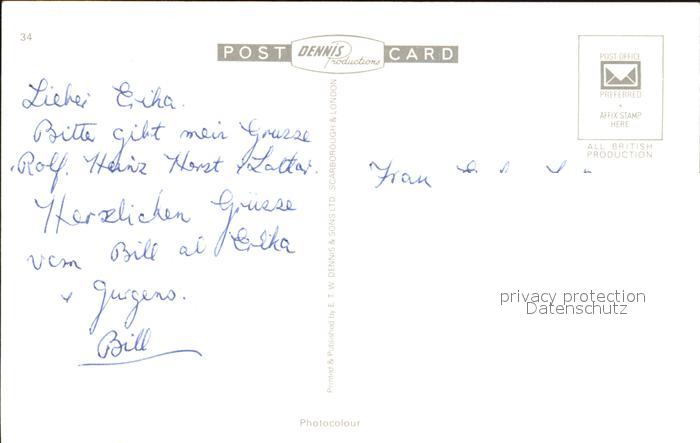 34
POST DENNIS Productions CARD
POST OFFICE
PREFERRED
AFFIX STAMP
HERE
ALL BRITISH
PRODUCTION
Lieber Erika.
Bitte gibt mein Grusse
Rolf. Heinz Horst + Lothar.
Herzlichen Grüsse
vom Bill al Erika
+ Gurgens.
Bill
Printed & Published by E. T. W. DENNIS & SONS LTD., SCARBOROUGH & LONDON
Frau
privacy protection
Datenschutz
Photocolour